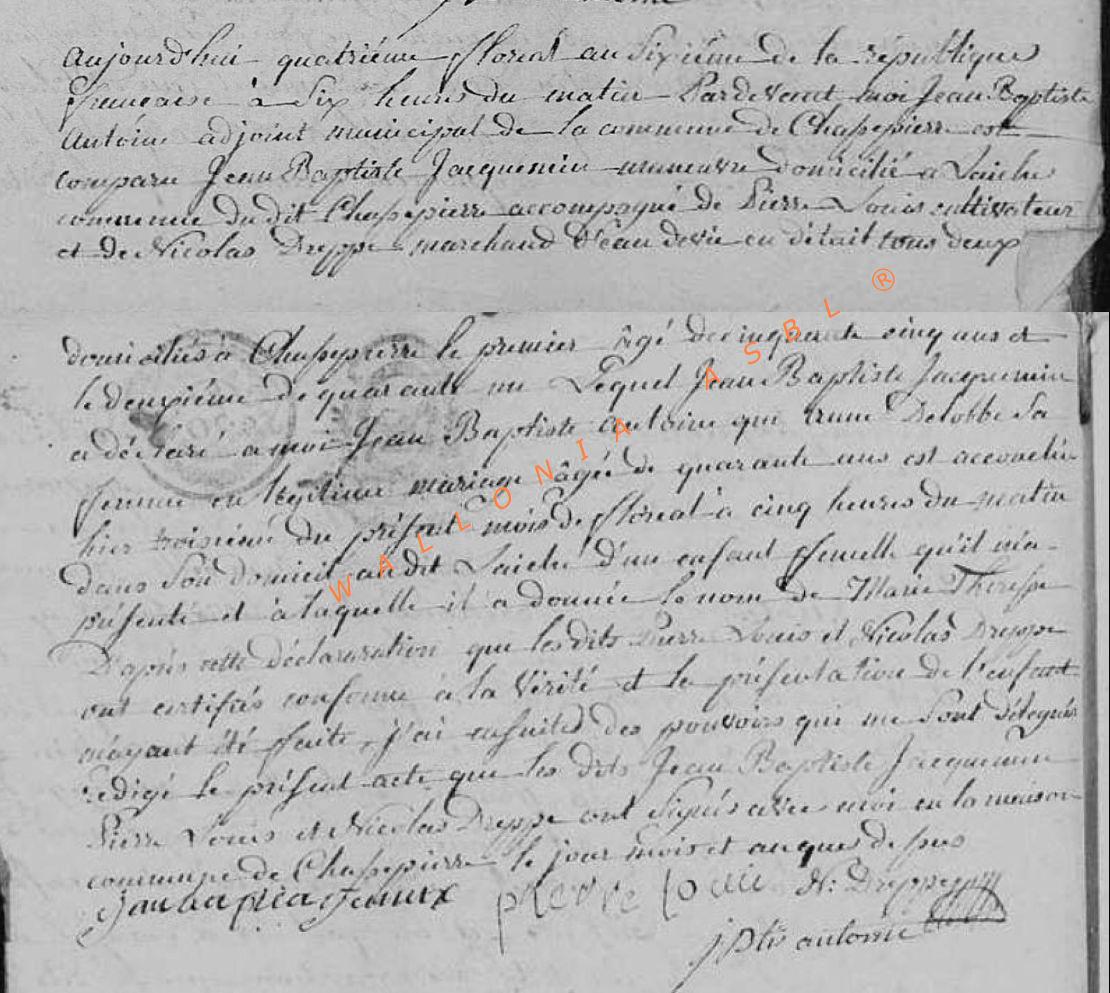 aujourd'hui quatrième floreal an Sixième de la république
française à Six heures du matin Pardevant moi Jean Baptiste
Antoine adjoint municipal de la commune de Chassepierre est
comparu Jean Baptiste Jacquemin maneuvre domicilié a Laiche
commune du dit Chassepierre accompagné de Pierre Louis cultivateur
et de Nicolas Dreppe marchand d'eau de vie en détail tous deux
domiciliés à Chassepierre le premier âgé de cinquante cinq ans et
le deuxième de quarante un Lequel Jean Baptiste Jacquemin
a déclaré a moi Jean Baptiste antoine que anne Delobbe Sa
femme en légitime mariage âgée de quarante ans est accouchée
hier troisième du présent mois de floreal à cinq heures du matin
dans Son domicil au dit Laiche d'un enfant femelle qu'il m'a
présenté et a laquelle il a donnée le nom de Marie Therese
D'après cette déclaration que les dits Pierre Louis et Nicolas Dreppe
ont certifiés conforme à la Vérité et la présentation de l'enfant
m'ayant été faite, j'ai ensuite des pouvoirs qui me Sont délegués
redigé le présent acte que les dits Jean Baptiste Jacquemin
Pierre Louis et Nicolas Dreppe ont Signés avec moi en la maison
commune de Chassepierre le jour mois et an que dessus
pierre louis N: Dreppe
j Pte antoine
WALLONIA ASBL ®